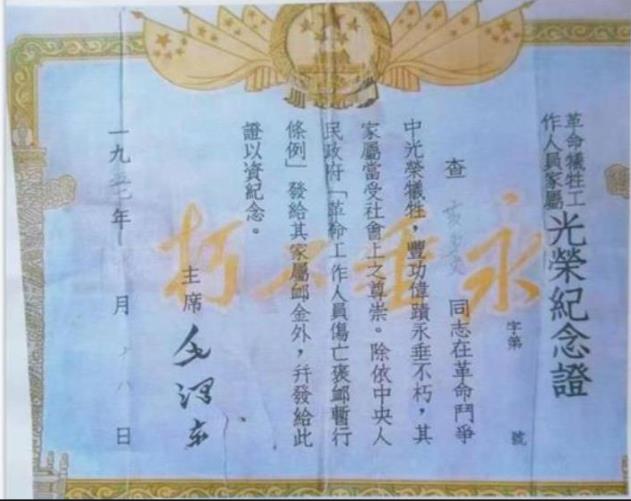 革命犧牲工
作人員家屬
光榮紀念證
字第 號
查 同志在革命鬥爭
中光榮犧牲，豐功偉蹟永垂不朽，其
家屬當受社會上之尊崇。除依中央人
民政府「革命工作人員傷亡褒卹暫行
條例」發給其家屬卹金外，幷發給此
證以資紀念。
主席 毛澤東
一九五 年 月 八日
永垂不朽